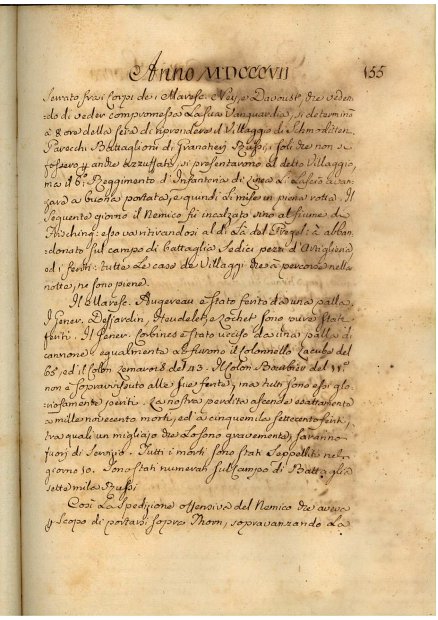 Anno MDCCCVII 155
serrato frai Corpi dei Maresc. Ney, e Davoust, che veden
do di veder compromessa la sua Vanguardia, si determinò
à 8 ore della sera di riprendere il Villaggio di Schmoditten.
Parecchj Battaglioni di Granatieri Russi, i soli che non si
fossero, si presentarono al detto Villaggio,
ma il 6°. Reggimento di Infanteria di Linea li lasciò avan
zare a buona portata, e quindi li mise in piena rotta. Il
seguente giorno il Nemico fù incalzato sino al fiume di
Frisching: esso và ritirandosi al di là del Pregel: à abban:
donato sul campo di battaglia sedici pezzi d'Artiglieria,
ed i feriti: tutte le case de Villaggi che à percorsi nella
notte, ne sono piene.
Il Maresc. Augereau è stato ferito da una palla.
I Gener. Desjardin, Heudelet, e Lochet sono pure stati
feriti. Il Gener. Corbines è stato ucciso da una palla di
cannone, egualmente che furono il colonnello Lacuée del
63°, ed il Colon. Lemarois del 43. Il Colon. Bouvier del 11°
non è sopravvissuto alle sue ferite, ma tutti sono essi glo
riosamente periti. La nostra perdita ascende esattamente
a mille novecento morti, ed a cinquemila settecento feriti,
tra quali un migliajo che lo sono gravemente, saranno
fuori di servizio. Tutti i morti sono stati seppelliti nel
giorno 10. Sono stati numerati sul Campo di Battaglia
sette mila Russi.
Così la spedizione offensiva del Nemico che aveva
p scopo di portarsi sopra Thorn, sopravanzando la